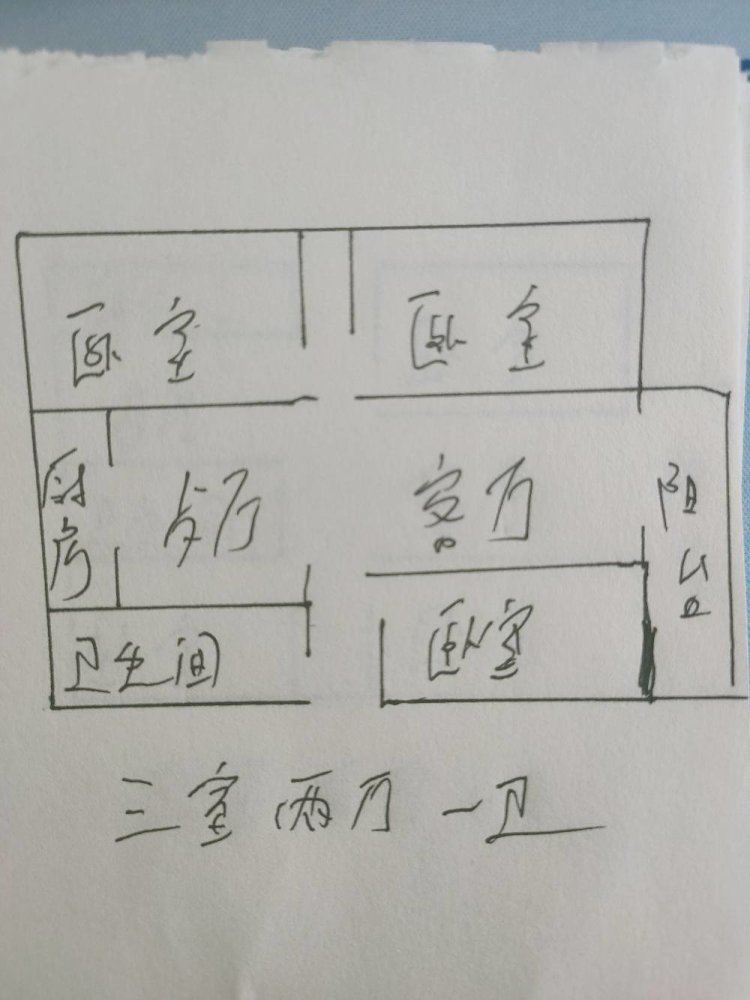 卧室
卧室
厨房
歺厅
客厅
阳台
卫生间
卧室
三室两厅一卫